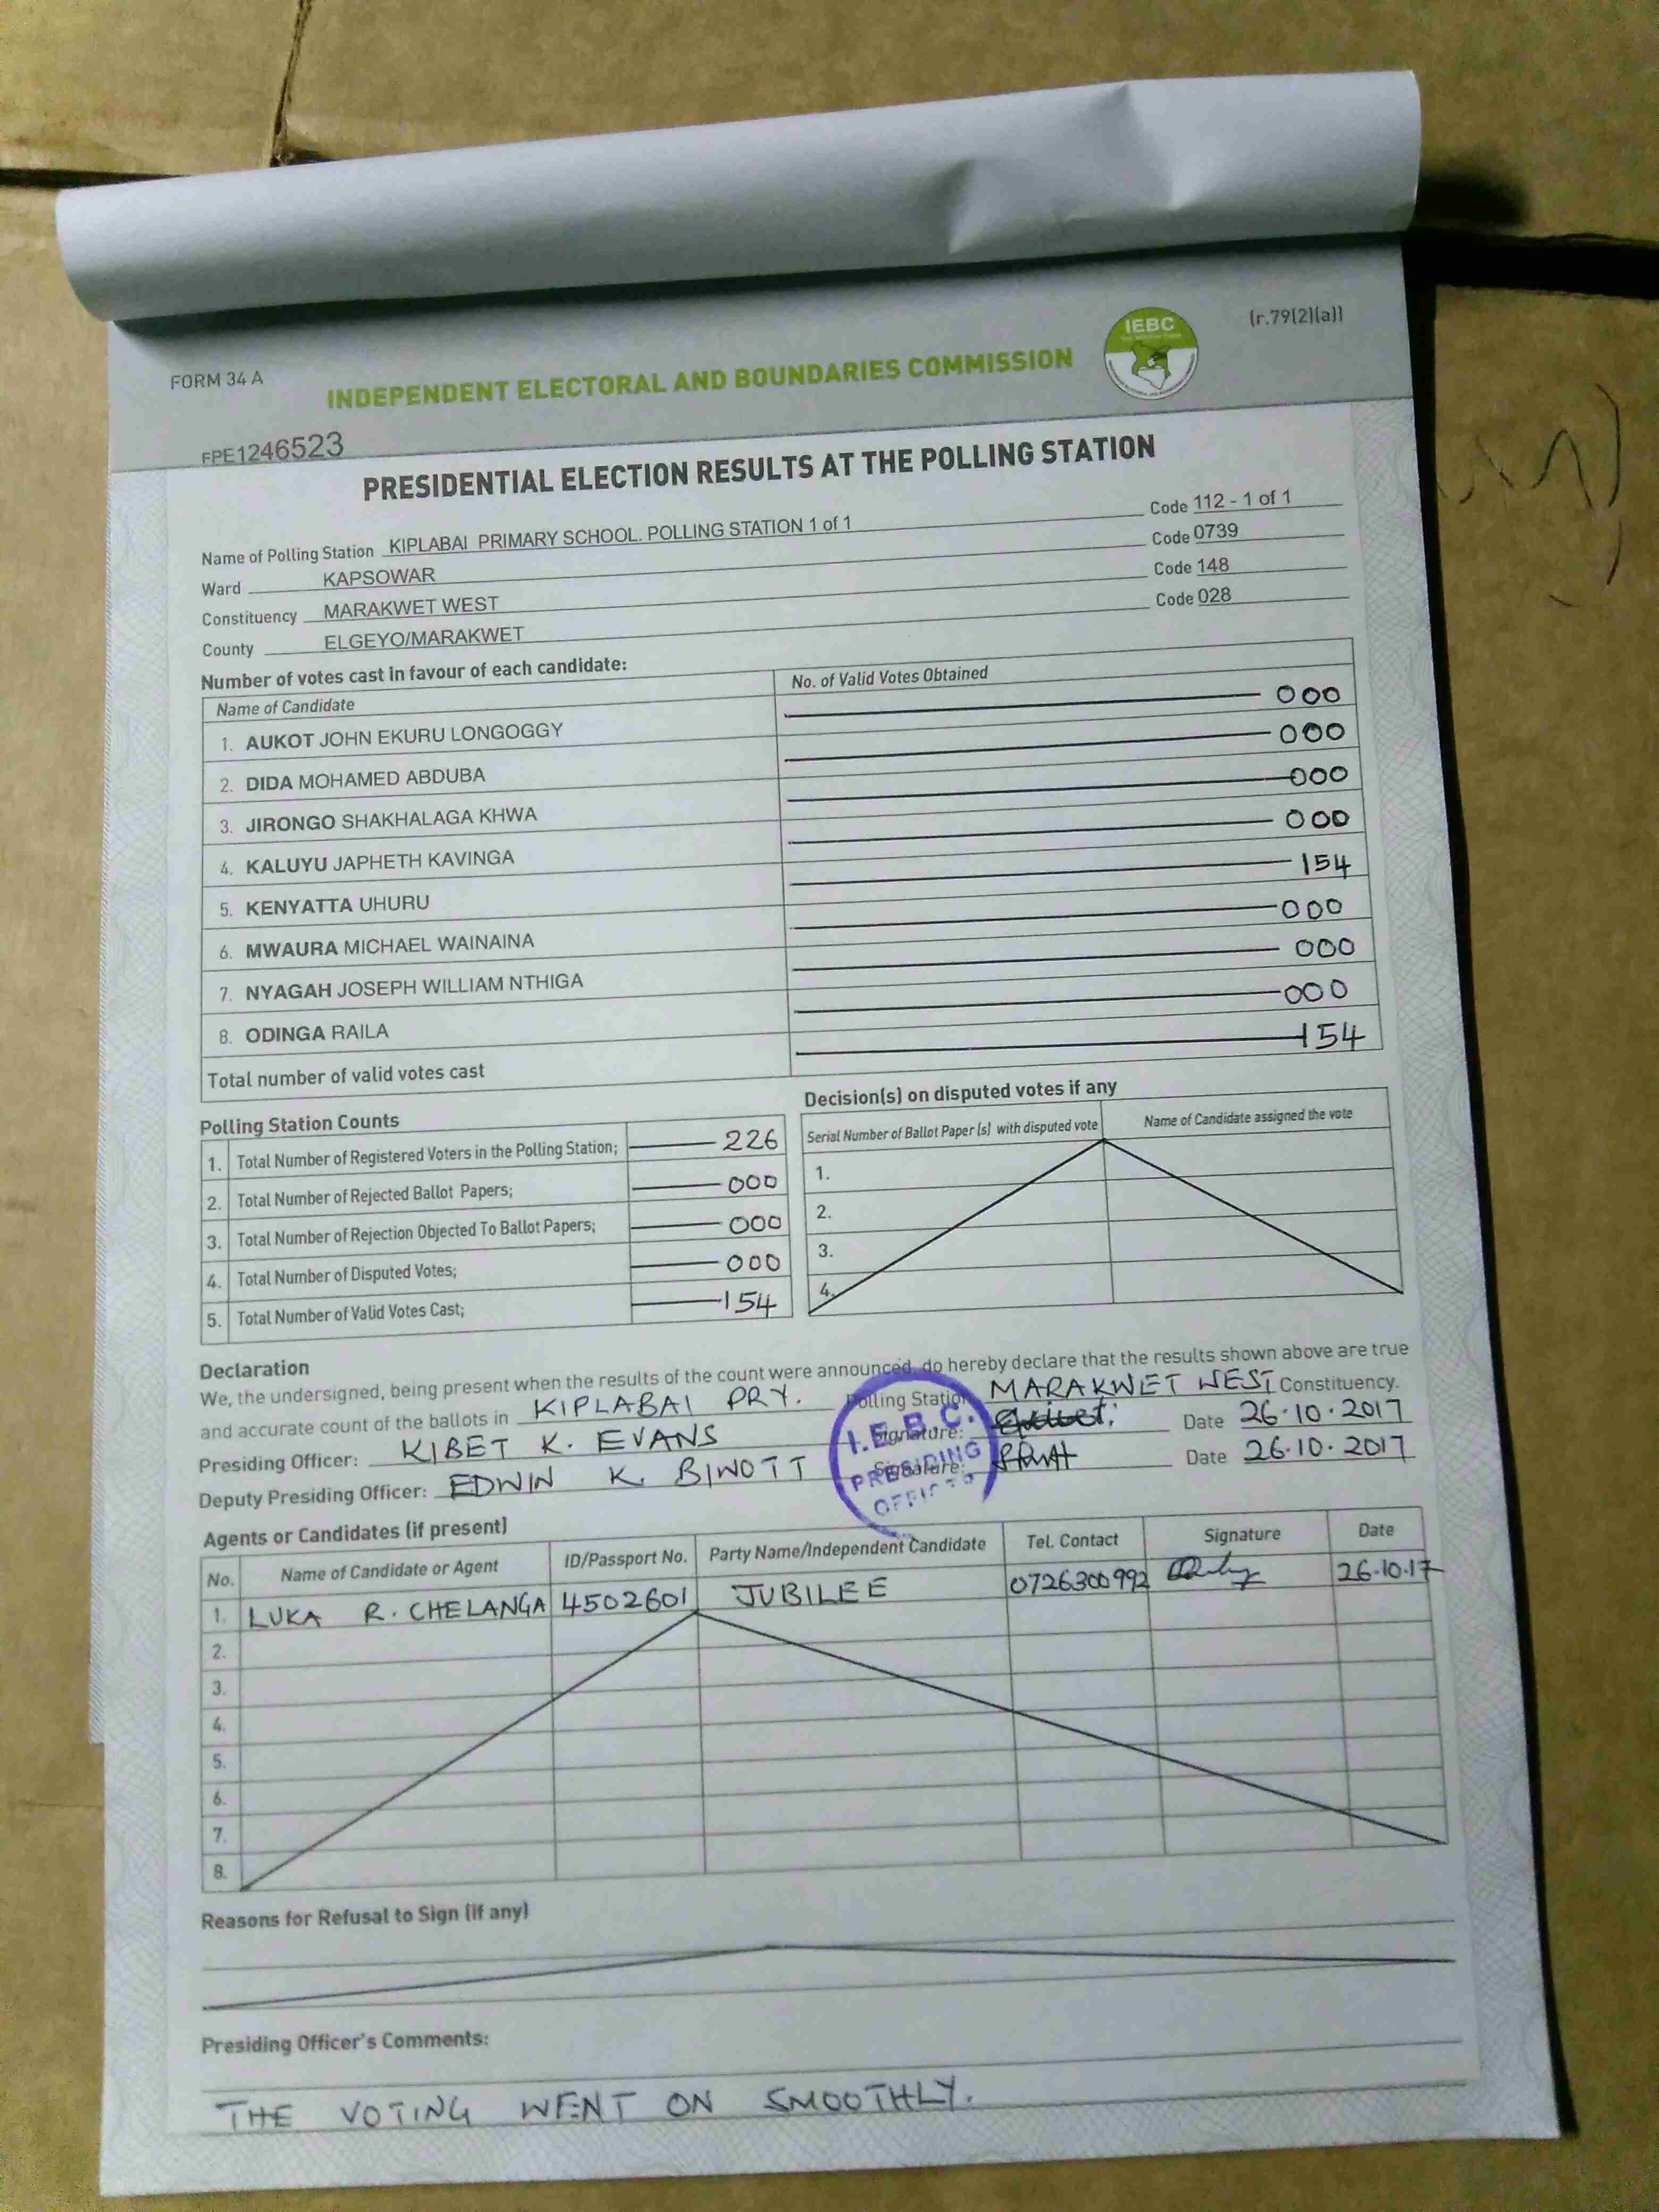 FORM 34 A
INDEPENDENT ELECTORAL AND BOUNDARIES COMMISSION
IEBC
(r.79(2)(a))
FPE1246523
PRESIDENTIAL ELECTION RESULTS AT THE POLLING STATION
Name of Polling Station KIPLABAI PRIMARY SCHOOL. POLLING STATION 1 of 1 Code 112 - 1 of 1
Ward KAPSOWAR Code 0739
Constituency MARAKWET WEST Code 148
County ELGEYO/MARAKWET Code 028
Number of votes cast in favour of each candidate:
Name of Candidate No. of Valid Votes Obtained
1. AUKOT JOHN EKURU LONGOGGY 000
2. DIDA MOHAMED ABDUBA 000
3. JIRONGO SHAKHALAGA KHWA 000
4. KALUYU JAPHETH KAVINGA 000
5. KENYATTA UHURU 154
6. MWAURA MICHAEL WAINAINA 000
7. NYAGAH JOSEPH WILLIAM NTHIGA 000
8. ODINGA RAILA 000
Total number of valid votes cast 154
Polling Station Counts
1. Total Number of Registered Voters in the Polling Station; 226
2. Total Number of Rejected Ballot Papers; 000
3. Total Number of Rejection Objected To Ballot Papers; 000
4. Total Number of Disputed Votes; 000
5. Total Number of Valid Votes Cast; 154
Decision(s) on disputed votes if any
Serial Number of Ballot Paper (s) with disputed vote Name of Candidate assigned the vote
1.
2.
3.
4.
Declaration
We, the undersigned, being present when the results of the count were announced, do hereby declare that the results shown above are true
and accurate count of the ballots in KIPLABAI PRY. Polling Station MARAKWET WEST Constituency.
Presiding Officer: KIBET K. EVANS Signature: Date 26.10.2017
Deputy Presiding Officer: EDWIN K. BIWOTT Signature: Date 26.10.2017
I.E.B.C.
PRESIDING
OFFICER
Agents or Candidates (if present)
No. Name of Candidate or Agent ID/Passport No. Party Name/Independent Candidate Tel. Contact Signature Date
1. LUKA R. CHELANGA 4502601 JUBILEE 0726300992 26.10.17
2.
3.
4.
5.
6.
7.
8.
Reasons for Refusal to Sign (if any)
Presiding Officer's Comments:
THE VOTING WENT ON SMOOTHLY.